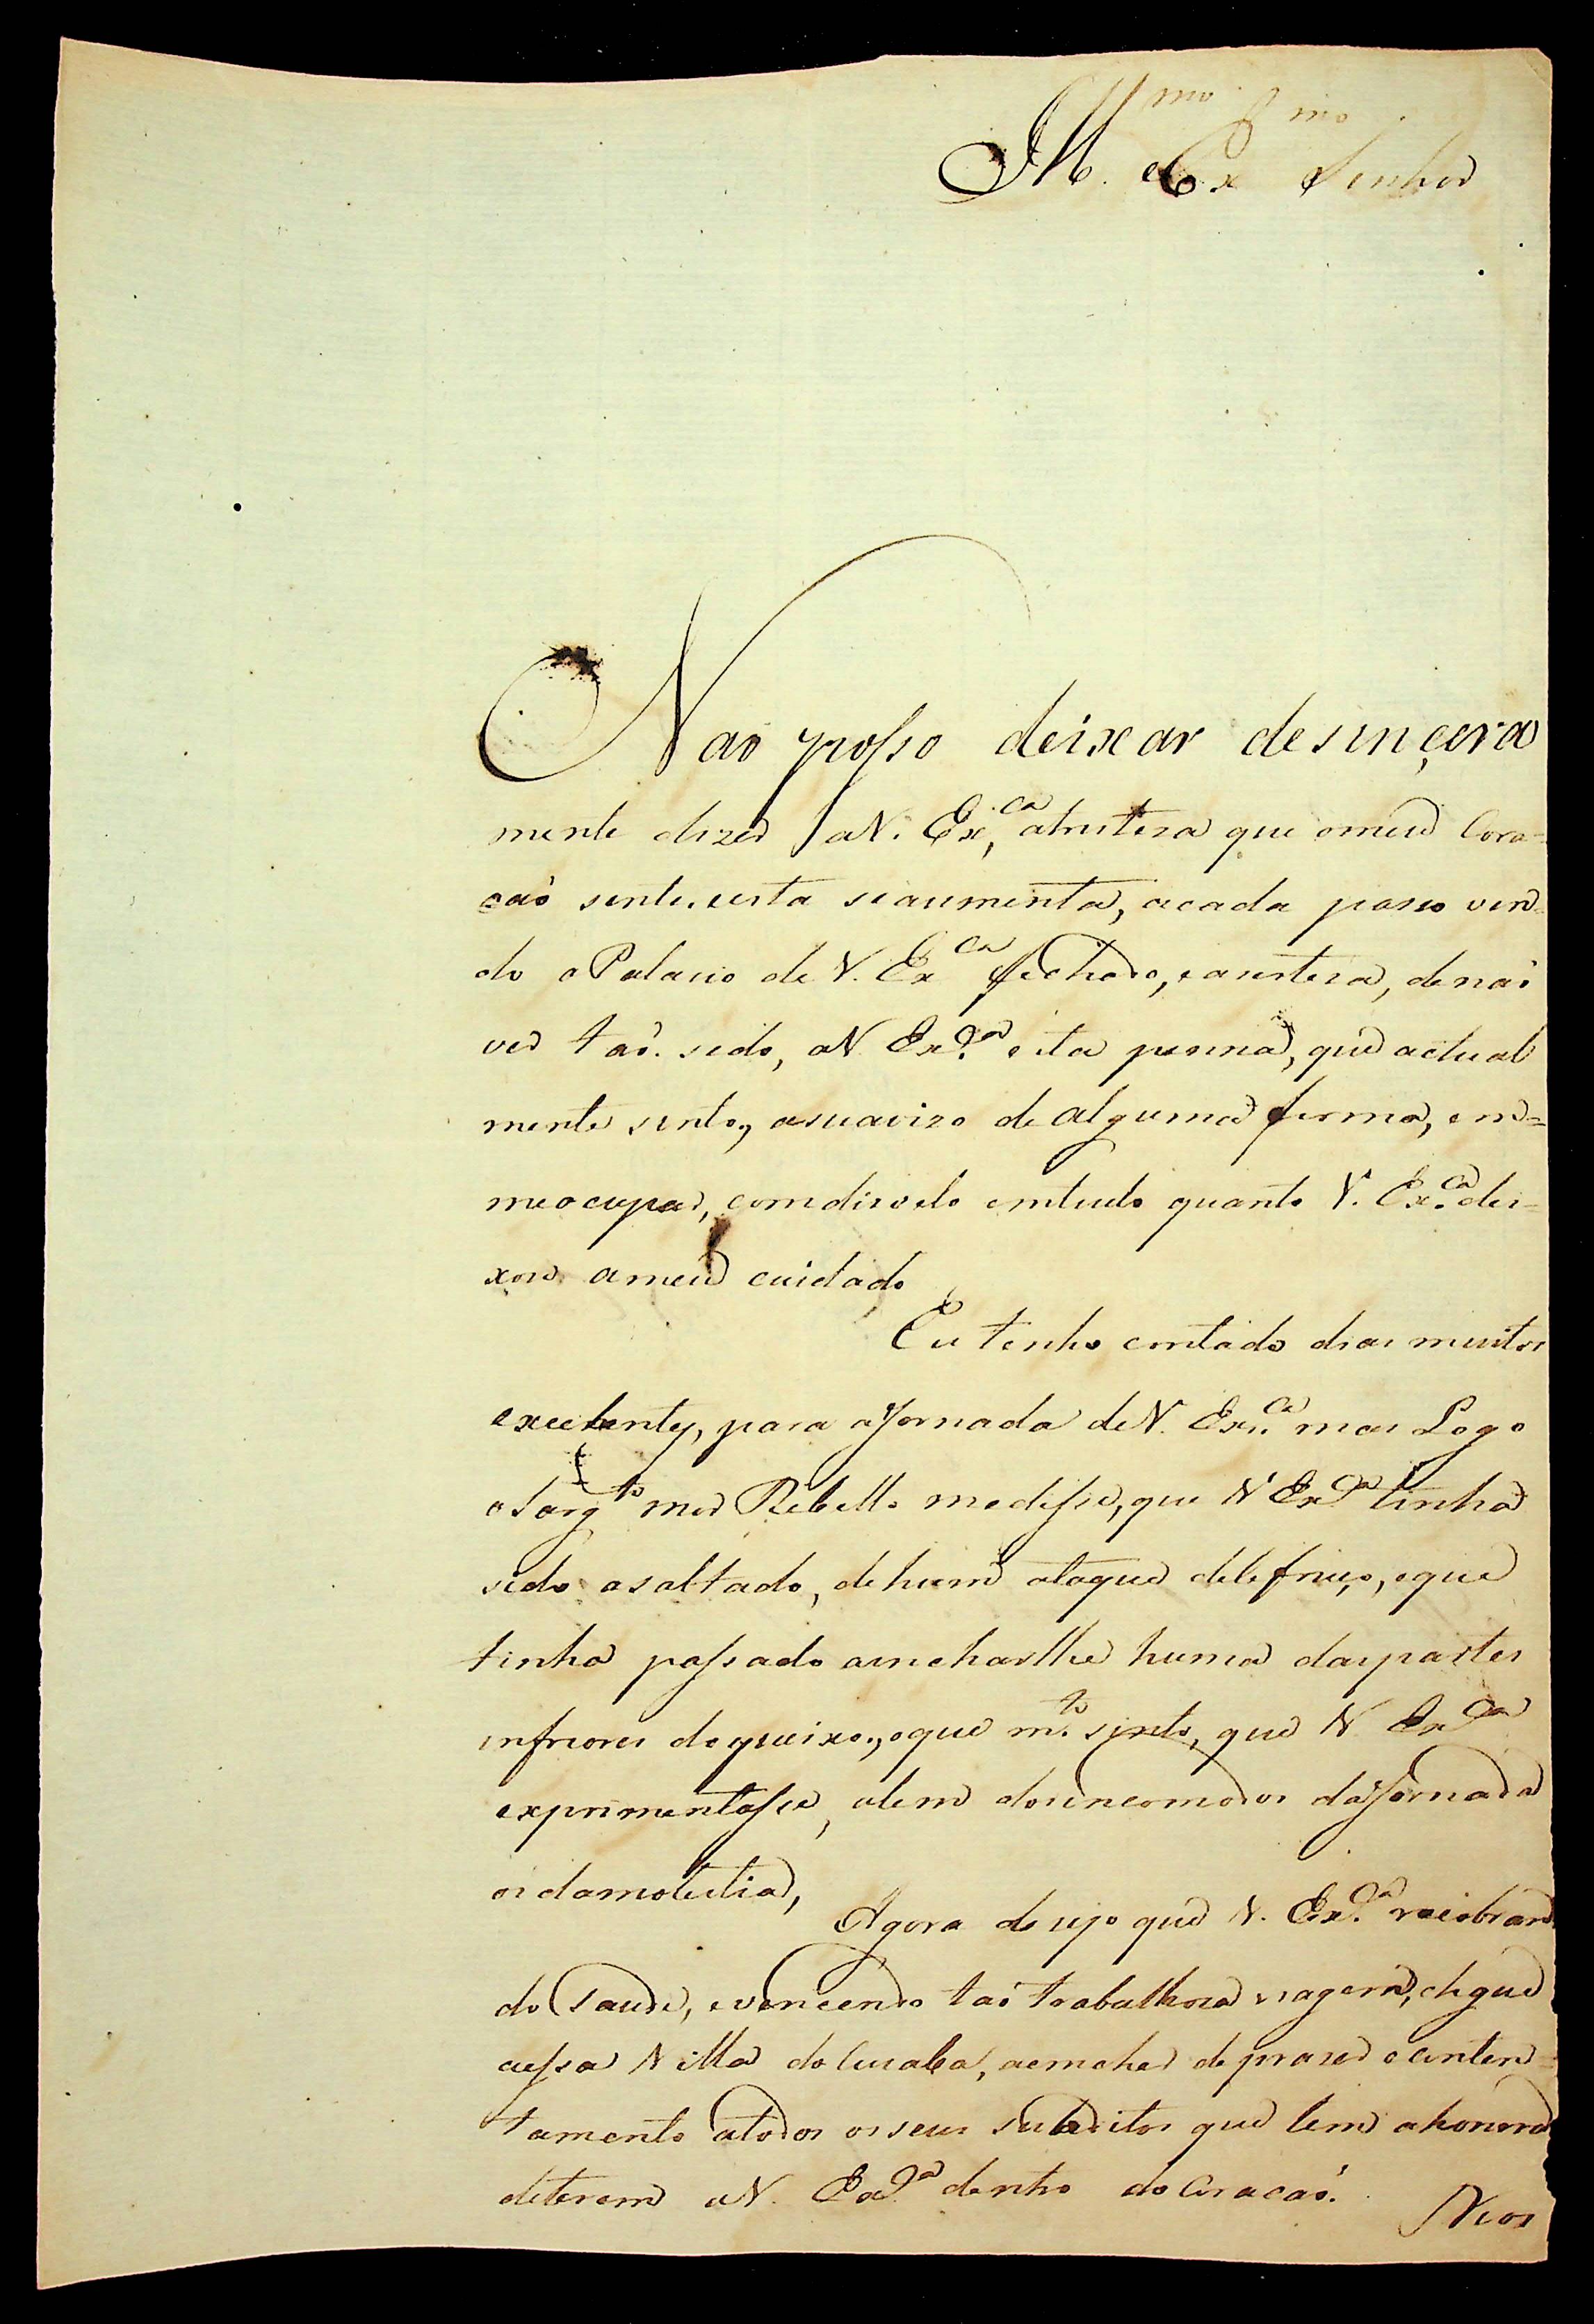 Ill.mo e Ex.mo Senhor
Não posso deixar desincera
mente dizer a V. Ex.ca atristeza que omeu Cora-
ção sente, eesta seaumenta, acada passo ven-
do o Palacio de V. Ex.ca fechado, eacerteza, de não
ver tão sedo, a V Ex.ca esta penna, que actual
mente sinto, asuavizo de alguma forma, em=
meocupar, comdisvelo emtudo quanto V. Ex.ca dei-
xou ameu cuidado
Eu tenho contado dias muitos
excelentes, para ajornada de V. Ex.ca mas Logo
o Sarg.to mor Rebello medisse, que V Ex.ca tinha
sido asaltado, dehum ataque dedefruço, eque
tinha passado ainchar lhe huma daspartes
infriores doqueixo, oque m.to sinto, que V Ex.ca
exprimentasse, alem dosincomodos dajornada
os damolestia,
Agora desejo que V. Ex.ca recobran
do Saude, evencendo tão trabalhosa viagem, chegue
aessa Villa do Cuiaba, aencher de prazer e conten=
tamento atodos osseus subditos que tem ahonra
deterem a V. Ex.ca dentro do Coração.
Nos